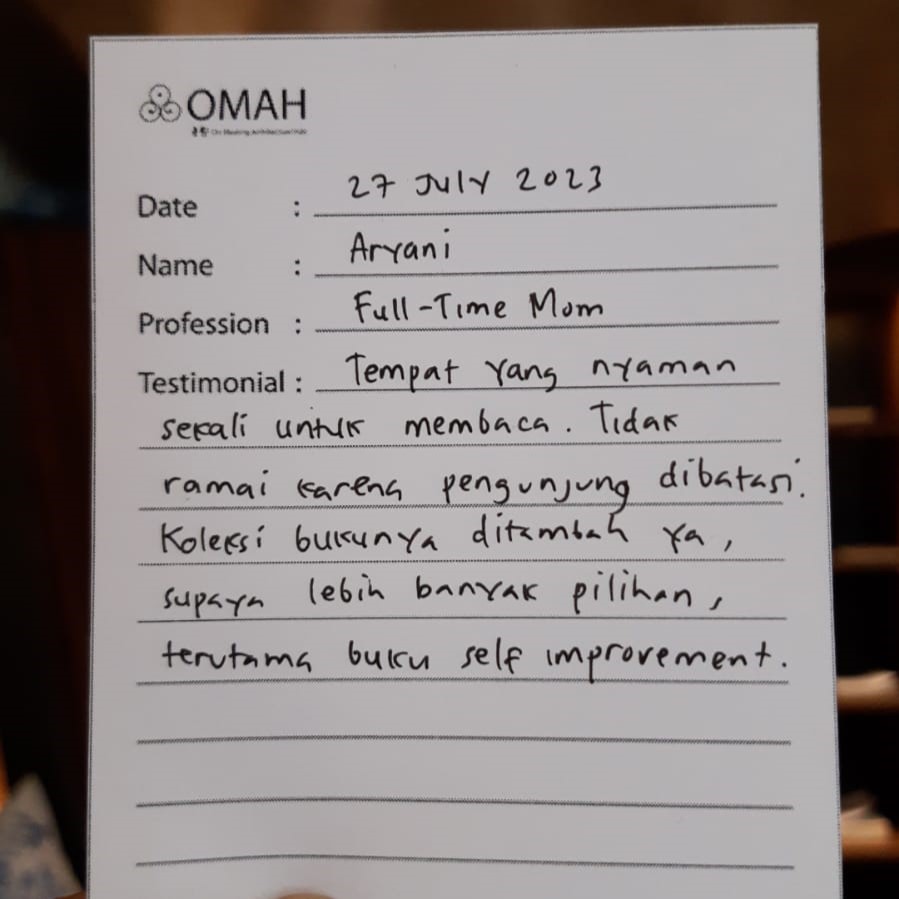 OMAH
Date : 27 July 2023
Name : Aryani
Profession : Full-Time Mom
Testimonial : Tempat yang nyaman
sekali untuk membaca. Tidak
ramai karena pengunjung dibatasi.
Koleksi bukunya ditambah ya,
supaya lebih banyak pilihan,
terutama buku self improvement.